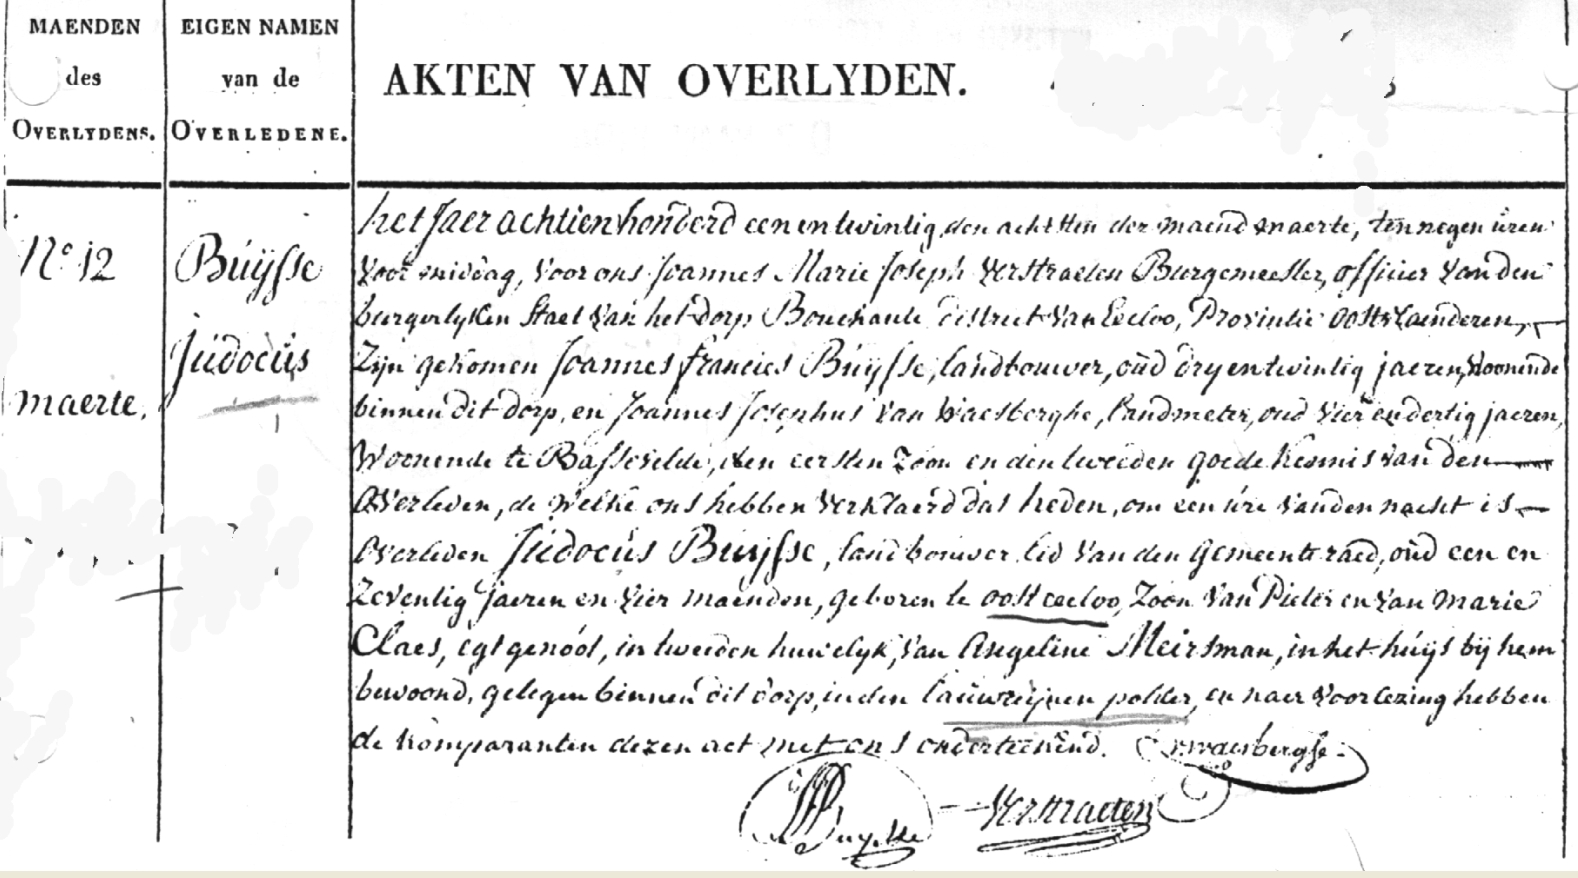 MAENDEN
des
OVERLYDENS.
EIGEN NAMEN
van de
OVERLEDENE.
AKTEN VAN OVERLYDEN.
N° 12
maerte.
Buÿsse
Judocus
het Jaer achtien honderd een en twintig, den achtsten der maend maerte, ten negen uren
voor middag, voor ons Joannes Marie Joseph Verstraeten Burgemeester, officier van den
burgerlyken Staet van het dorp Bouchaute district van Eecloo, Provintie oostvlaenderen,
Zijn gekomen Joannes francies Buÿsse, landbouwer, oud dry en twintig jaeren, Woonende
binnen dit dorp, en Joannes Josephus Van Waesberghe, Landmeter, oud vier en dertig jaeren,
Woonende te Bassevelde, den eersten Zoon en den tweeden goede kennis van den
Overleden, de welke ons hebben verklaerd dat heden, om een ure van den nacht is
Overleden Judocus Buÿsse, landbouwer lid van den Gemeente raed, oud een en
Zeventig Jaeren en vier maenden, geboren te oost eecloo, Zoon van Pieter en van Marie
Claes, egtgenoot, in tweeden huwelyk, van Angeline Meirsman, in het huys bij hem
bewoond, gelegen binnen dit dorp, in den lauwreijnen polder, en naer voorlezing hebben
de komparanten dezen act met ons onderteekend. vwaesberghe
Buysse Verstraeten